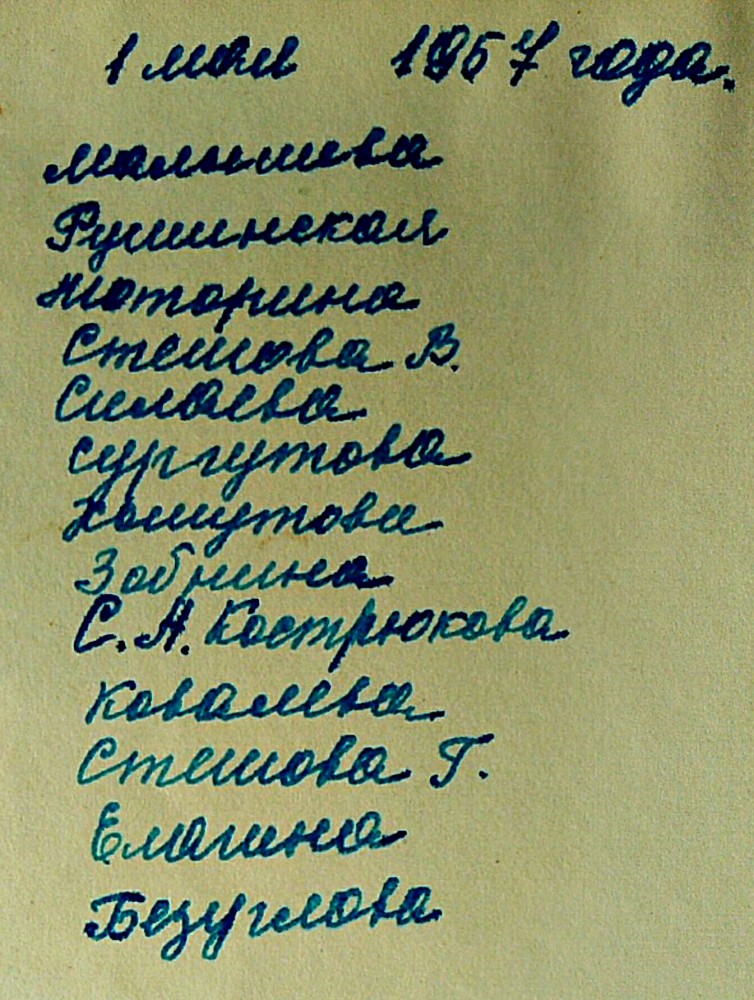 1 мая 1957 года.
Малышева
Рушинская
Жаторина
Стешова В.
Силаева
Сургутова
Хомутова
Зобнина
С. А. Кострюкова
Ковалева
Стешова Г.
Елагина
Безуглова